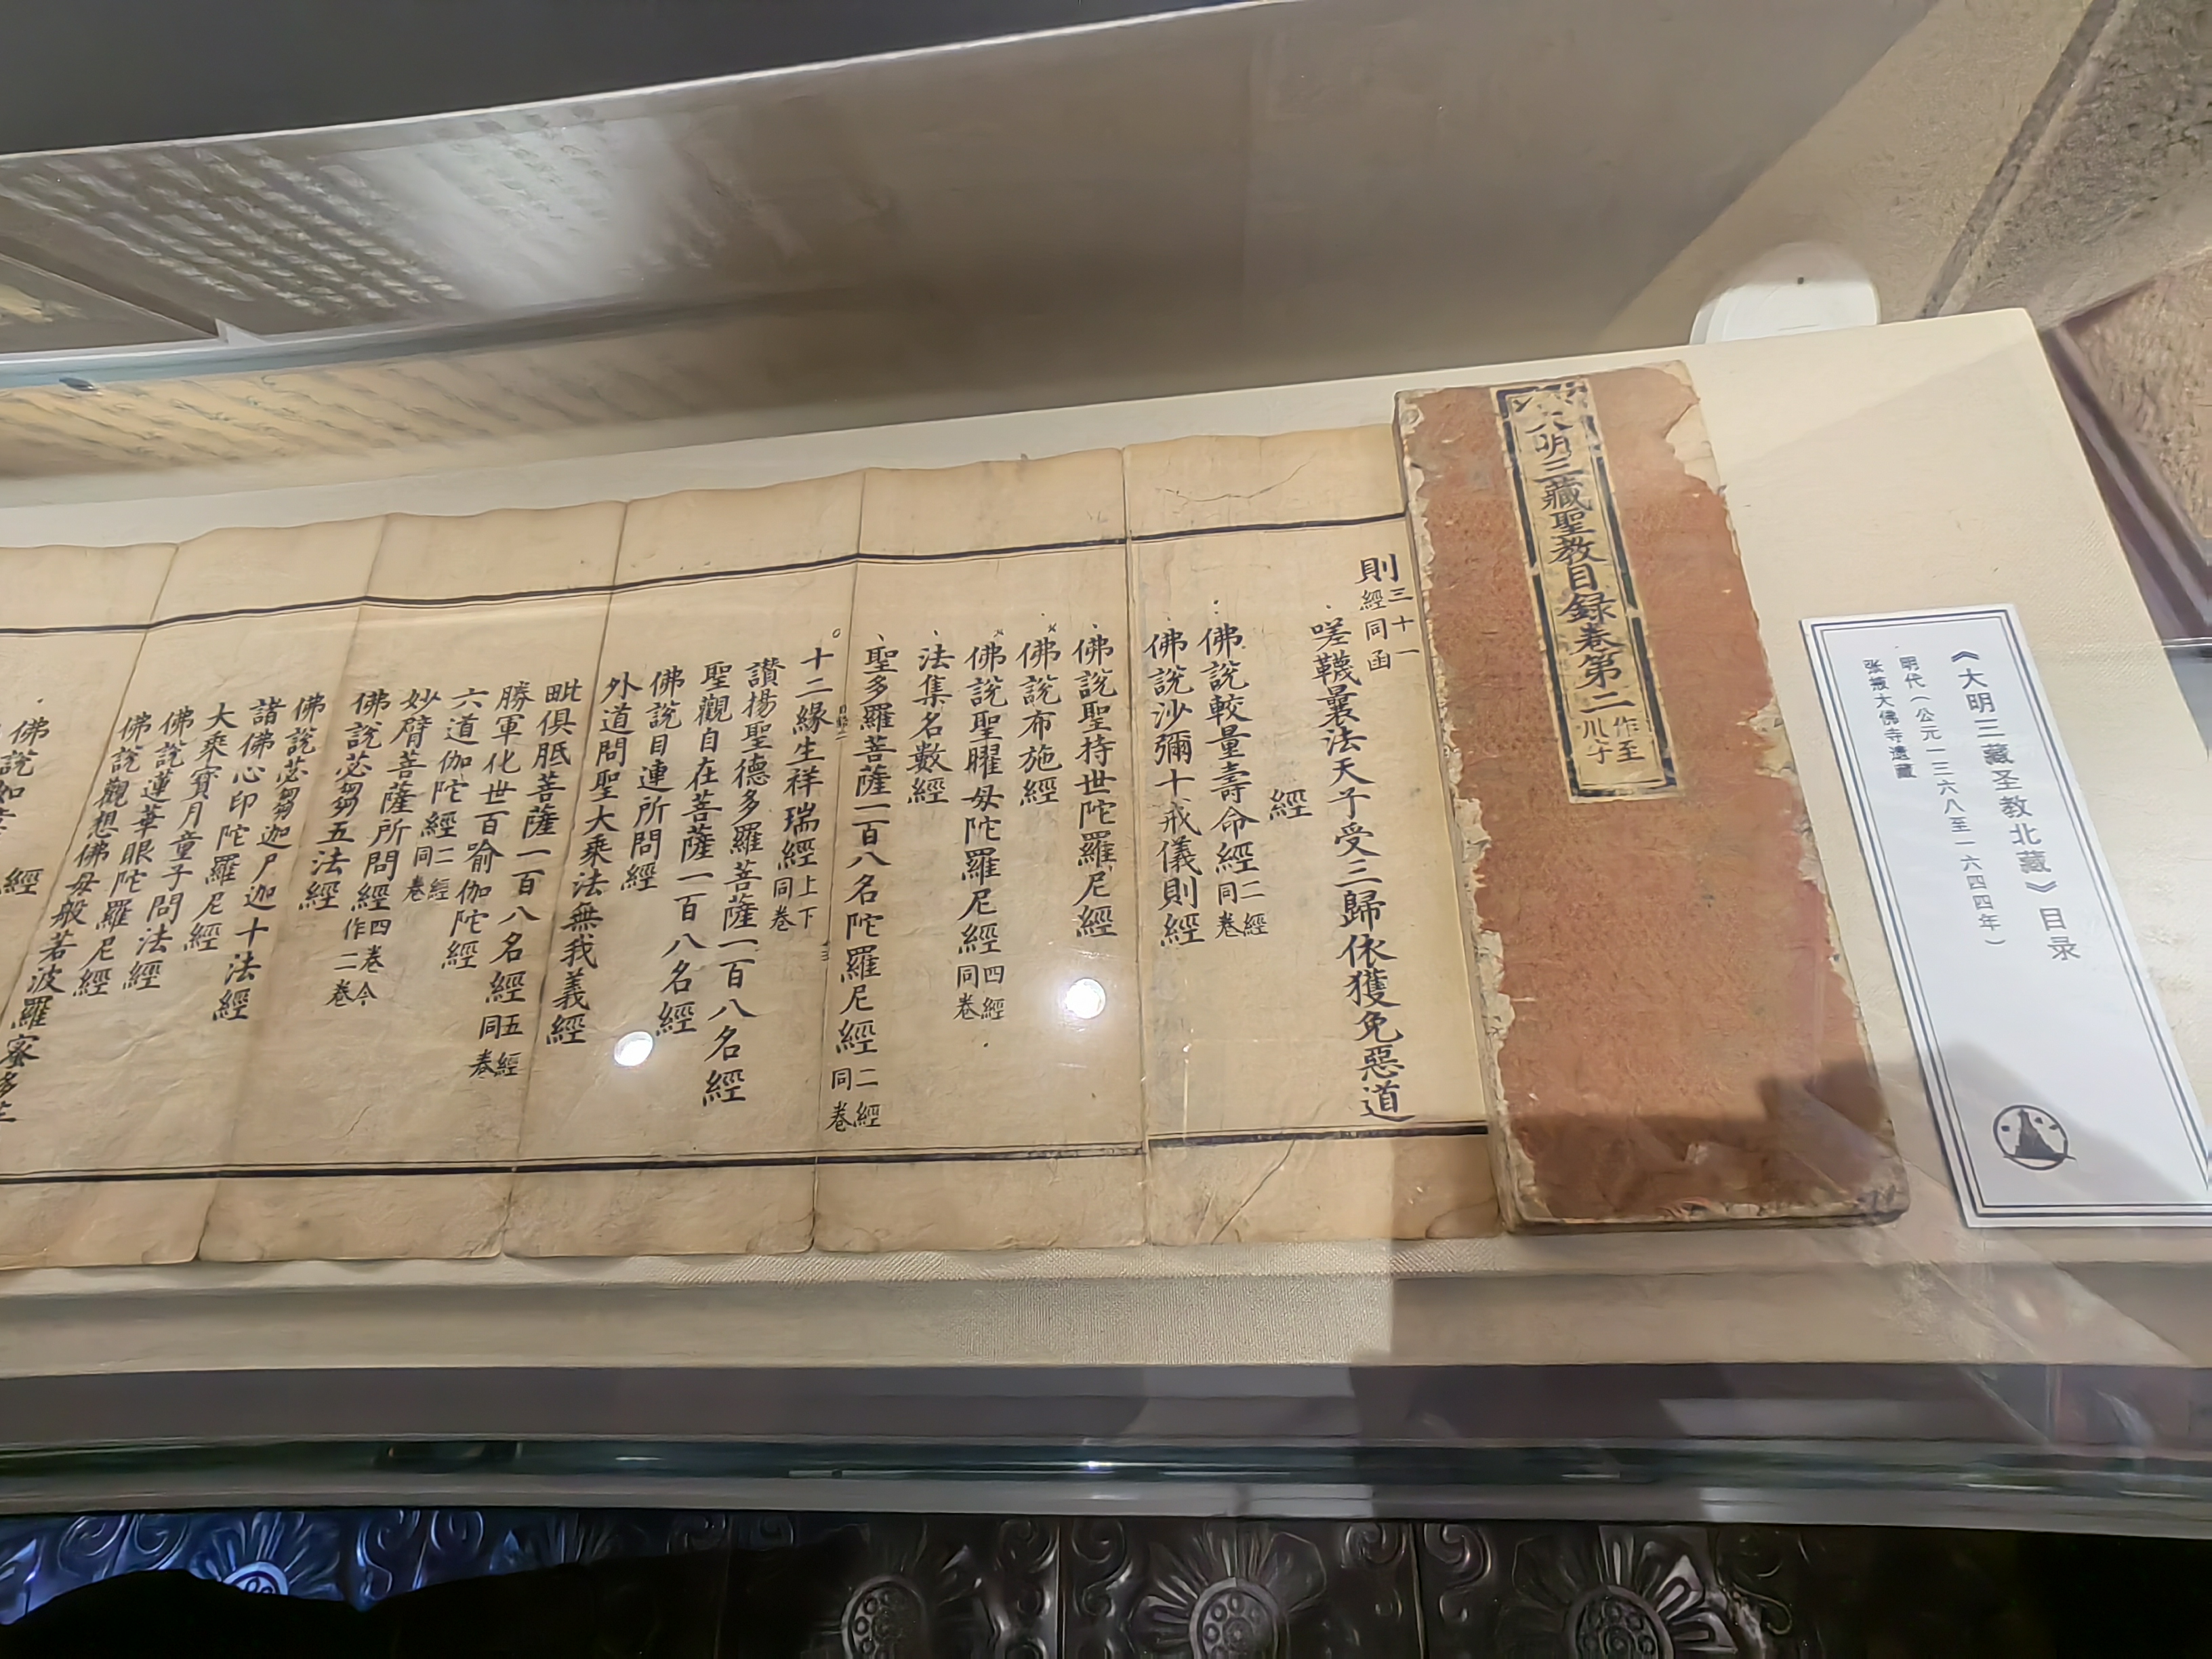 《大明三藏圣教北藏》目录
明代（公元一三六八至一六四四年）
张掖大佛寺遗藏
大明三藏聖教目録卷第二
作至
川字
則
三十一
經同函
嗟韈曩法天子受三歸依獲免惡道
經
佛說較量壽命經二經同卷
佛說沙彌十戒儀則經
佛說聖持世陀羅尼經
佛說布施經
佛說聖曜母陀羅尼經四經同卷
法集名數經
聖多羅菩薩一百八名陀羅尼經二經同卷
十二緣生祥瑞經上下同卷
讃揚聖德多羅菩薩一百八名經
聖觀自在菩薩一百八名經
佛說目連所問經
外道問聖大乘法無我義經
毗俱胝菩薩一百八名經五經同卷
勝軍化世百喻伽陀經
六道伽陀經二經同卷
妙臂菩薩所問經四卷今作二卷
佛說苾芻五法經
佛說苾芻迦尸迦十法經
諸佛心印陀羅尼經
大乘寳月童子問法經
佛說蓮華眼陀羅尼經
佛說觀想佛母般若波羅蜜多
佛說如
經